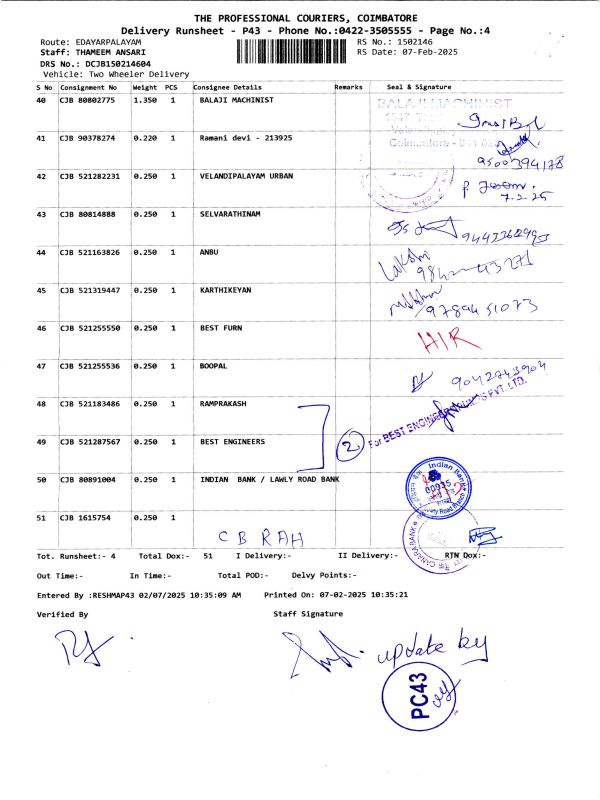 THE PROFESSIONAL COURIERS, COIMBATORE
Delivery Runsheet - P43 - Phone No.:0422-3505555 - Page No.:4
Route: EDAYARPALAYAM RS No.: 1502146
Staff: THAMEEM ANSARI RS Date: 07-Feb-2025
DRS No.: DCJB150214604
Vehicle: Two Wheeler Delivery
S No Consignment No Weight PCS Consignee Details Remarks Seal & Signature
40 CJB 80802775 1.350 1 BALAJI MACHINIST BALAJI MACHINIST
41 CJB 90378274 0.220 1 Ramani devi - 213925 Coimbatore
9500394178
42 CJB 521282231 0.250 1 VELANDIPALAYAM URBAN
7.2.25
43 CJB 80814888 0.250 1 SELVARATHINAM
44 CJB 521163826 0.250 1 ANBU Lakshmi
45 CJB 521319447 0.250 1 KARTHIKEYAN
9789451073
46 CJB 521255550 0.250 1 BEST FURN HIR
47 CJB 521255536 0.250 1 BOOPAL 9042743904
48 CJB 521183486 0.250 1 RAMPRAKASH
49 CJB 521287567 0.250 1 BEST ENGINEERS 2 For BEST ENGINEERS PVT LTD.
50 CJB 80891004 0.250 1 INDIAN BANK / LAWLY ROAD BANK Indian Bank
51 CJB 1615754 0.250 1
CB RAH CANARA BANK
Tot. Runsheet:- 4 Total Dox:- 51 I Delivery:- II Delivery:- RTN Dox:-
Out Time:- In Time:- Total POD:- Delvy Points:-
Entered By :RESHMAP43 02/07/2025 10:35:09 AM Printed On: 07-02-2025 10:35:21
Verified By Staff Signature
update by
PC43